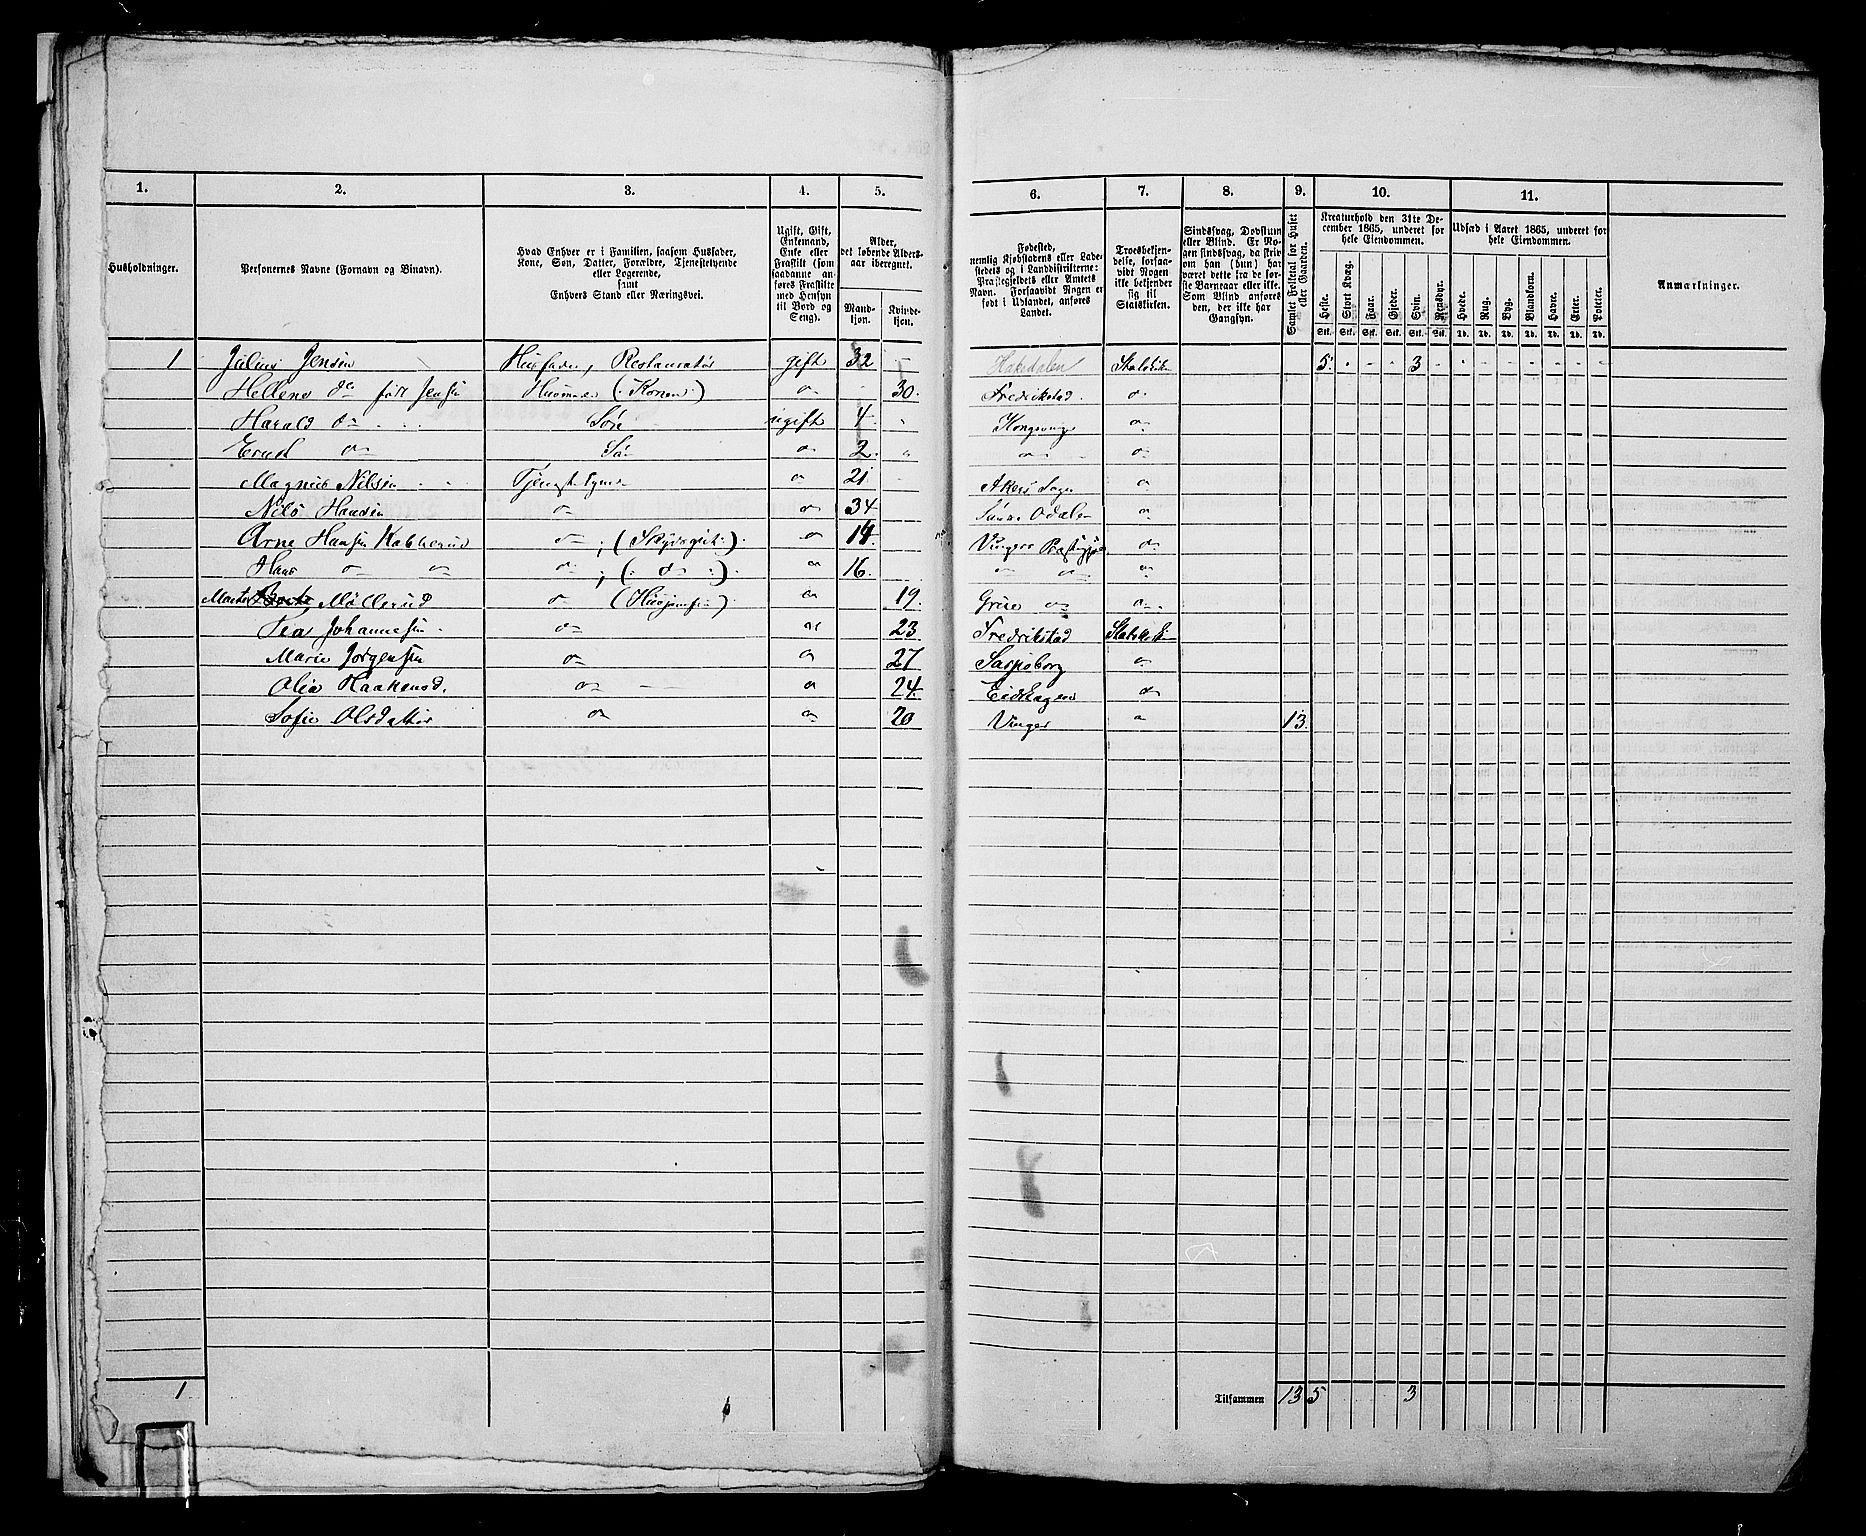 1. 2. 3. 4. 5. 6. 7. 8. 9. 10. 11.
Husholdninger.
Personernes Navne (Fornavn og Binavn).
Hvad Enhver er i Familien, saasom Husfader, Kone, Søn, Datter, Forældre, Tjenestetyende eller Logerende, samt Enhvers Stand eller Næringsvei.
Ugift, Gift, Enkemand, Enke eller Fraskilt (som saadanne anføres Fraskilte med Hensyn til Bord og Seng).
Alder, det løbende Aldersaar iberegnet.
Mandkjøn. Kvindekjøn.
Fødested, nemlig Kjøbstadens eller Ladestedets og i Landdistrikterne: Præstegjeldets eller Amtets Navn. Forsaavidt Nogen er født i Udlandet, anføres Landet.
Troesbekjendelse, forsaavidt Nogen ikke bekjender sig til Statskirken.
Sindssvag, Døvstum eller Blind. Er Nogen sindssvag, da skrives om han (hun) har været dette fra de første Barneaar eller ikke. Som Blind anføres den, der ikke har Gangsyn.
Samlet Folketal for Huset eller Gaarden.
Kreaturhold den 31te December 1865, underet for hele Eiendommen.
Heste. Stort Kvæg. Faar. Gjeder. Svin. Rensdyr.
Stk. Stk. Stk. Stk. Stk. Stk.
Udsæd i Aaret 1865, underet for hele Eiendommen.
Hvede. Rug. Byg. Blandkorn. Havre. Erter. Poteter.
Td. Td. Td. Td. Td. Td. Td.
Anmærkninger.
1 Julius Jensen Husfader, Restauratør gift 32 Hakedalen 5 3
Hellene do født Jensen (Konen) 30 Fredrikstad
Harald do Søn ugift 4
do 2
Magnus Nilsen 21 Akers Sogn
Nils Hansen 34 Søndre Odalen
Arne Hansen Kabberud (Skydsgut) 14 Vingers
Hans do do (do) 16
Marte Møllerud do 19 Grue do
Tea Johannesen do 23 Fredrikstad
Marie Jørgensen do 27 Sarpsborg
Olia Haakensd. do 24 Eidskogen do
Sofie Olsdatter do 20 Vinger 13
1 Tilsammen 13 5 3